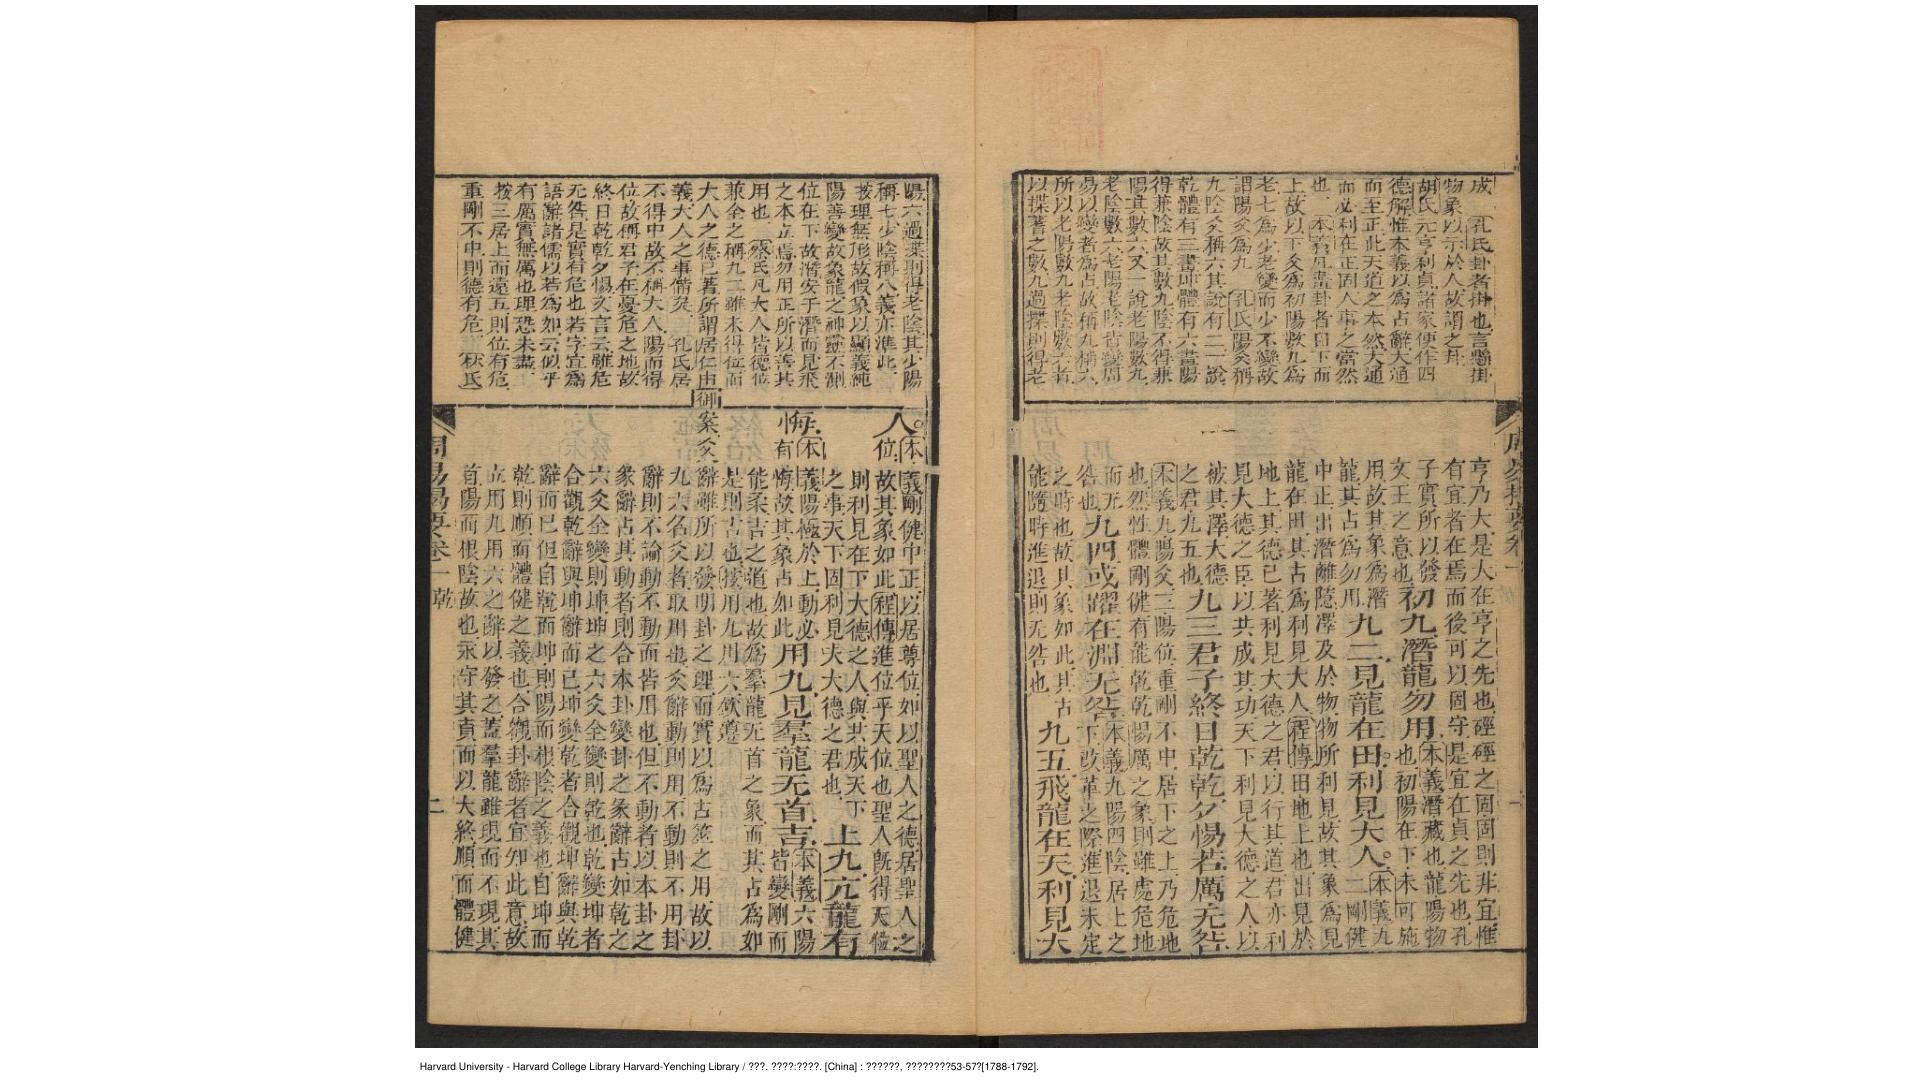 成 孔氏卦者掛也言懸掛
物象以示於人故謂之卦
胡氏元亨利貞諸家便作四
德解惟本義以爲占辭大通
而至正此天道之本然大通
而必利在正固人事之當然
也 本義凡畫卦者自下而
上故以下爻爲初陽數九爲
老七爲少老變而少不變故
謂陽爻爲九 孔氏陽爻稱
九陰爻稱六其說有二一說
乾體有三畫坤體有六畫陽
得兼陰故其數九陰不得兼
陽其數六又一說老陽數九
老陰數六老陽老陰皆變周
易以變者爲占故稱九稱六
所以老陽數九老陰數六者
以揲蓍之數九過揲則得老
亨乃大是大在亨之先也硜硜之固固則非宜惟
有宜者在焉而後可以固守是宜在貞之先也孔
子實所以發 本義潛藏也龍陽物
文王之意也初九潛龍勿用 也初陽在下未可施
用故其象爲潛 本義九
龍其占爲勿用九二見龍在田利見大人 二剛健
中正出潛離隱澤及於物物所利見故其象爲見
龍在田其占爲利見大人程傳田地上也出見於
地上其德已著利見大德之君以行其道君亦利
見大德之臣以共成其功天下利見大德之人以
被其澤大德
之君九五也九三君子終日乾乾夕惕若厲无咎
本義九陽爻三陽位重剛不中居下之上乃危地
也然性體剛健有能乾乾惕厲之象則雖處危地
而无 本義九陽四陰居上之
咎也九四或躍在淵无咎 下改革之際進退未定
之時也故其象如此其占
能隨時進退則无咎也 九五飛龍在天利見大
陽六過揲則得老陰其少陽
稱七少陰稱八義亦準此
按理無形故假象以顯義純
陽善變故象龍之神靈不測
位在下故潛安于潛而見飛
之本立焉勿用正所以善其
用也 蔡氏凡大人皆德位
兼全之稱九二雖未得位而
大人之德已著所謂居仁由
義大人之事備矣 孔氏居
不得中故不稱大人陽而得
位故稱君子在憂危之地故
終日乾乾夕惕文言云雖危
无咎是實有危也若字宜爲
語辭諸儒以若爲如云似乎
有厲實無厲也理恐未盡
按三居上而遠五則位有危
重剛不中則德有危 秋氏
人 本義剛健中正以居尊位如以聖人之德居聖人之
位故其象如此程傳進位乎天位也聖人旣得天位
則利見在下大德之人與共成天下
之事天下固利見夫大德之君也 上九亢龍有
悔 本義陽極於上動必 本義六陽
有悔故其象占如此用九見羣龍无首吉 皆變剛而
能柔吉之道也故爲羣龍无首之象而其占爲如
是則吉也 按用九用六欽遵
御案爻辭雖所以發明卦之理而實以爲占筮之用故以
九六名爻者取用也爻辭動則用不動則不用卦
辭則不論動不動而皆用也但不動者以本卦之
彖辭占其動者則合本卦變卦之彖辭占如乾之
六爻全變則坤坤之六爻全變則乾也乾變坤者
合觀乾辭與坤辭而已坤變乾者合觀坤辭與乾
辭而已但自乾而坤則陽而根陰之義也自坤而
乾則順而體健之義也合觀卦辭者宜知此意故
立用九用六之辭以發之蓋羣龍雖現而不現其
首陽而根陰故也永守其貞而以大終順而體健
周易揭要卷一 乾
二
Harvard University - Harvard College Library Harvard-Yenching Library / ???. ????:????. [China] : ??????, ????????53-57?[1788-1792].